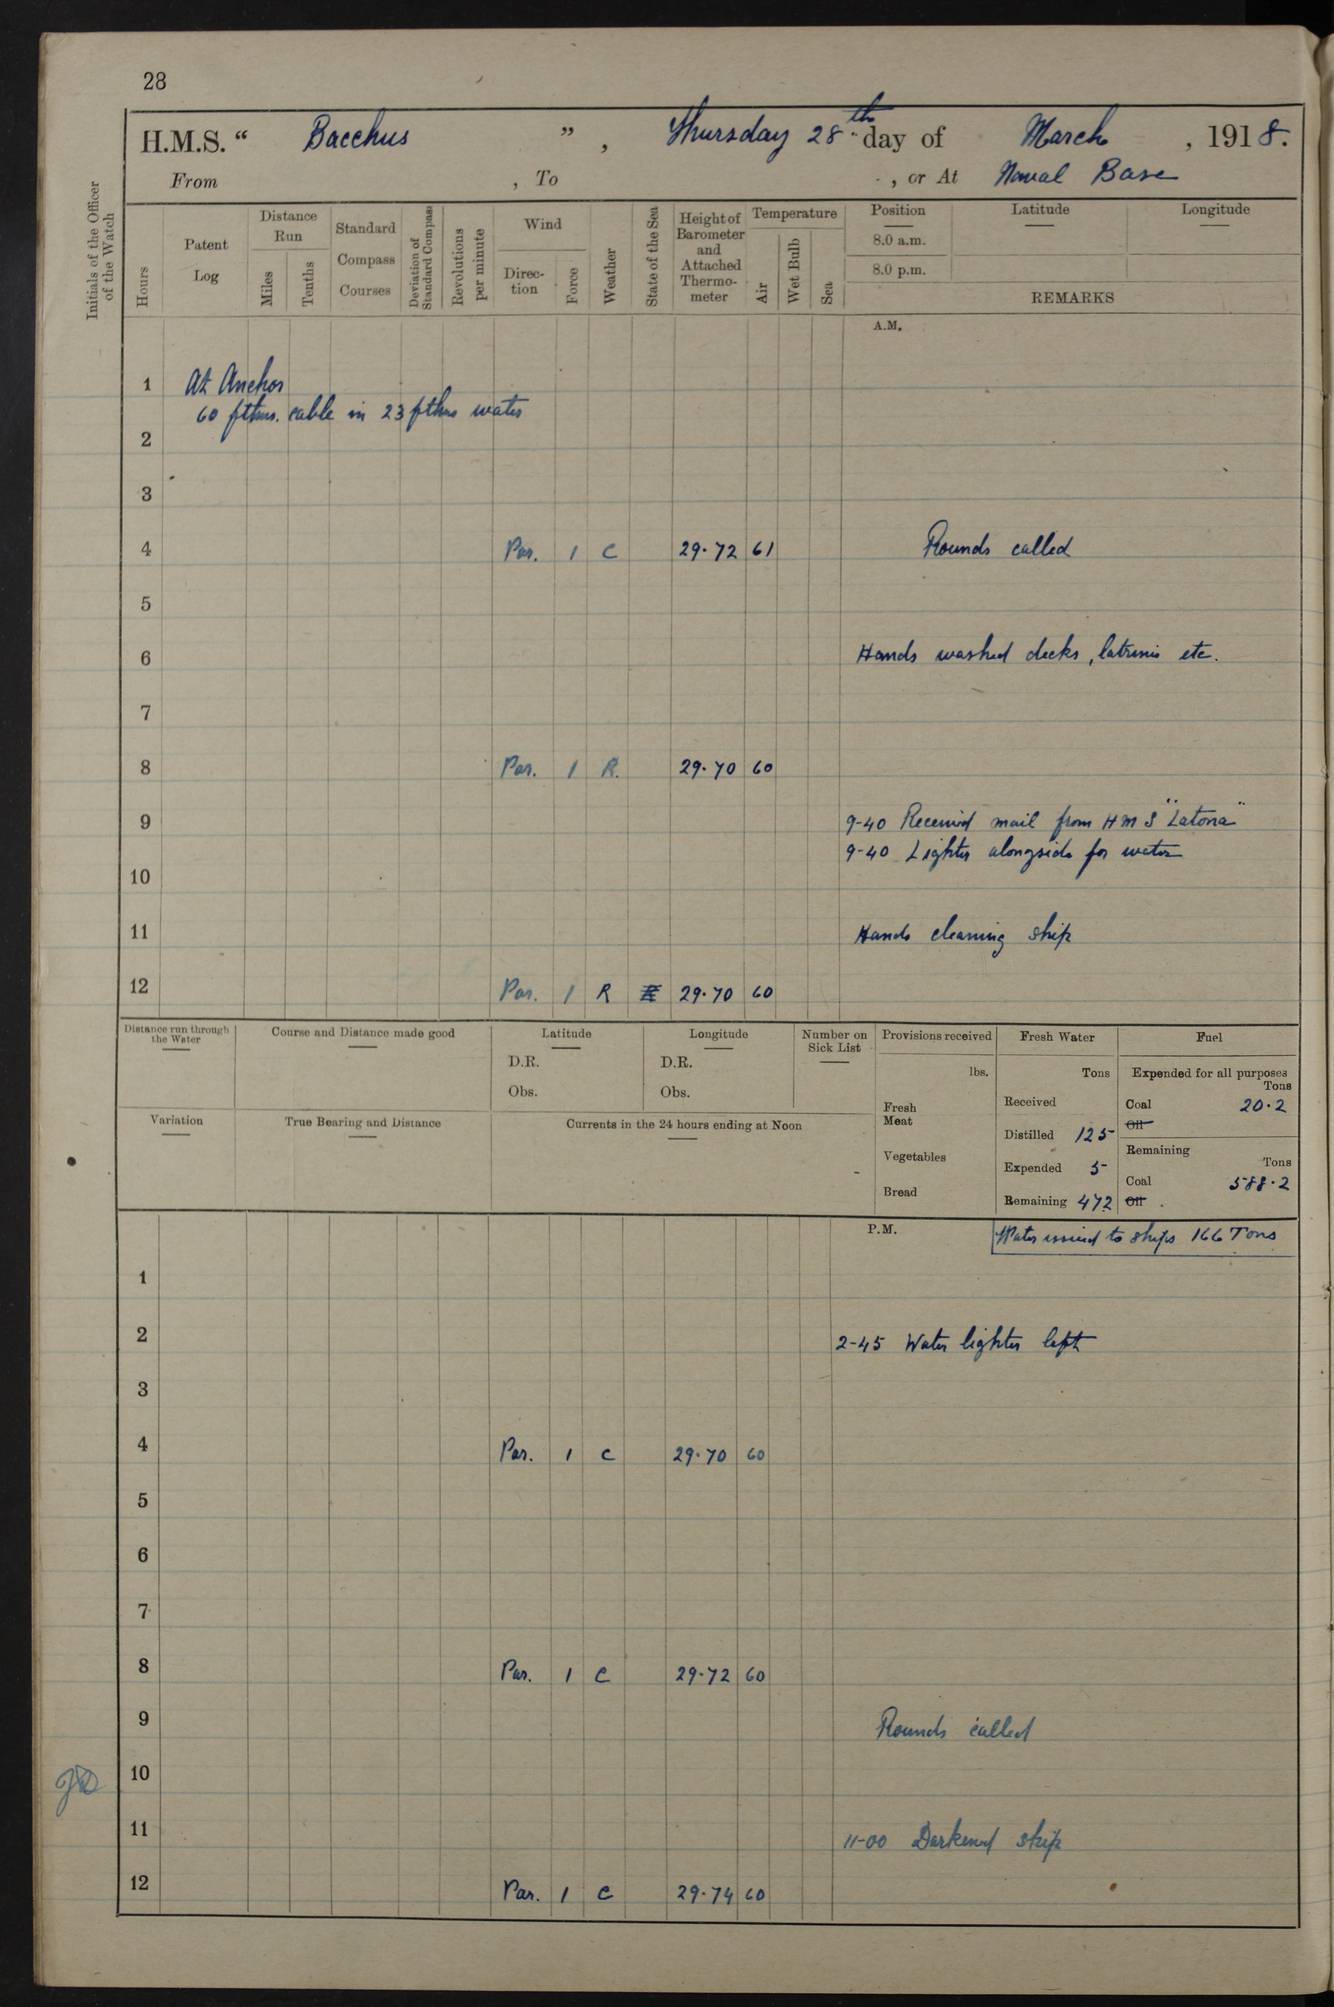 28
H.M.S. “ Bacchus ” , Thursday 28th day of March , 1918.
From , To , or At Naval Base
Initials of the Officer of the Watch
Hours
Patent Log
Distance Run
Miles
Tenths
Standard Compass Courses
Deviation of Standard Compass
Revolutions per minute
Wind
Direc-tion
Force
Weather
State of the Sea
Height of Barometer and Attached Thermo-meter
Temperature
Air
Wet Bulb
Sea
Position
8.0 a.m.
8.0 p.m.
Latitude
Longitude
REMARKS
A.M.
1 At Anchor
60 fthms. cable in 23 fthms water
2
3
4 Par. 1 C 29.72 61 Rounds called
5
6 Hands washed decks, latrines etc.
7
8 Par. 1 R. 29.70 60
9 9-40 Received mail from H M S "Latona"
9-40 Lighter alongside for water
10
11 Hands cleaning ship
12 Par. 1 R 29.70 60
Distance run through the Water
Course and Distance made good
Latitude
D.R.
Obs.
Longitude
D.R.
Obs.
Number on Sick List
Variation
True Bearing and Distance
Currents in the 24 hours ending at Noon
Provisions received
lbs.
Fresh Meat
Vegetables
Bread
Fresh Water
Tons
Received
Distilled 125
Expended 5
Remaining 472
Fuel
Expended for all purposes
Tons
Coal 20.2
Oil
Remaining
Tons
Coal 588.2
Oil
P.M. Water issued to ships 166 Tons
1
2 2-45 Water lighter left
3
4 Par. 1 C 29.70 60
5
6
7
8 Par. 1 C 29.72 60
9 Rounds called
10
11 11-00 Darkened ship
12 Par. 1 C 29.74 60